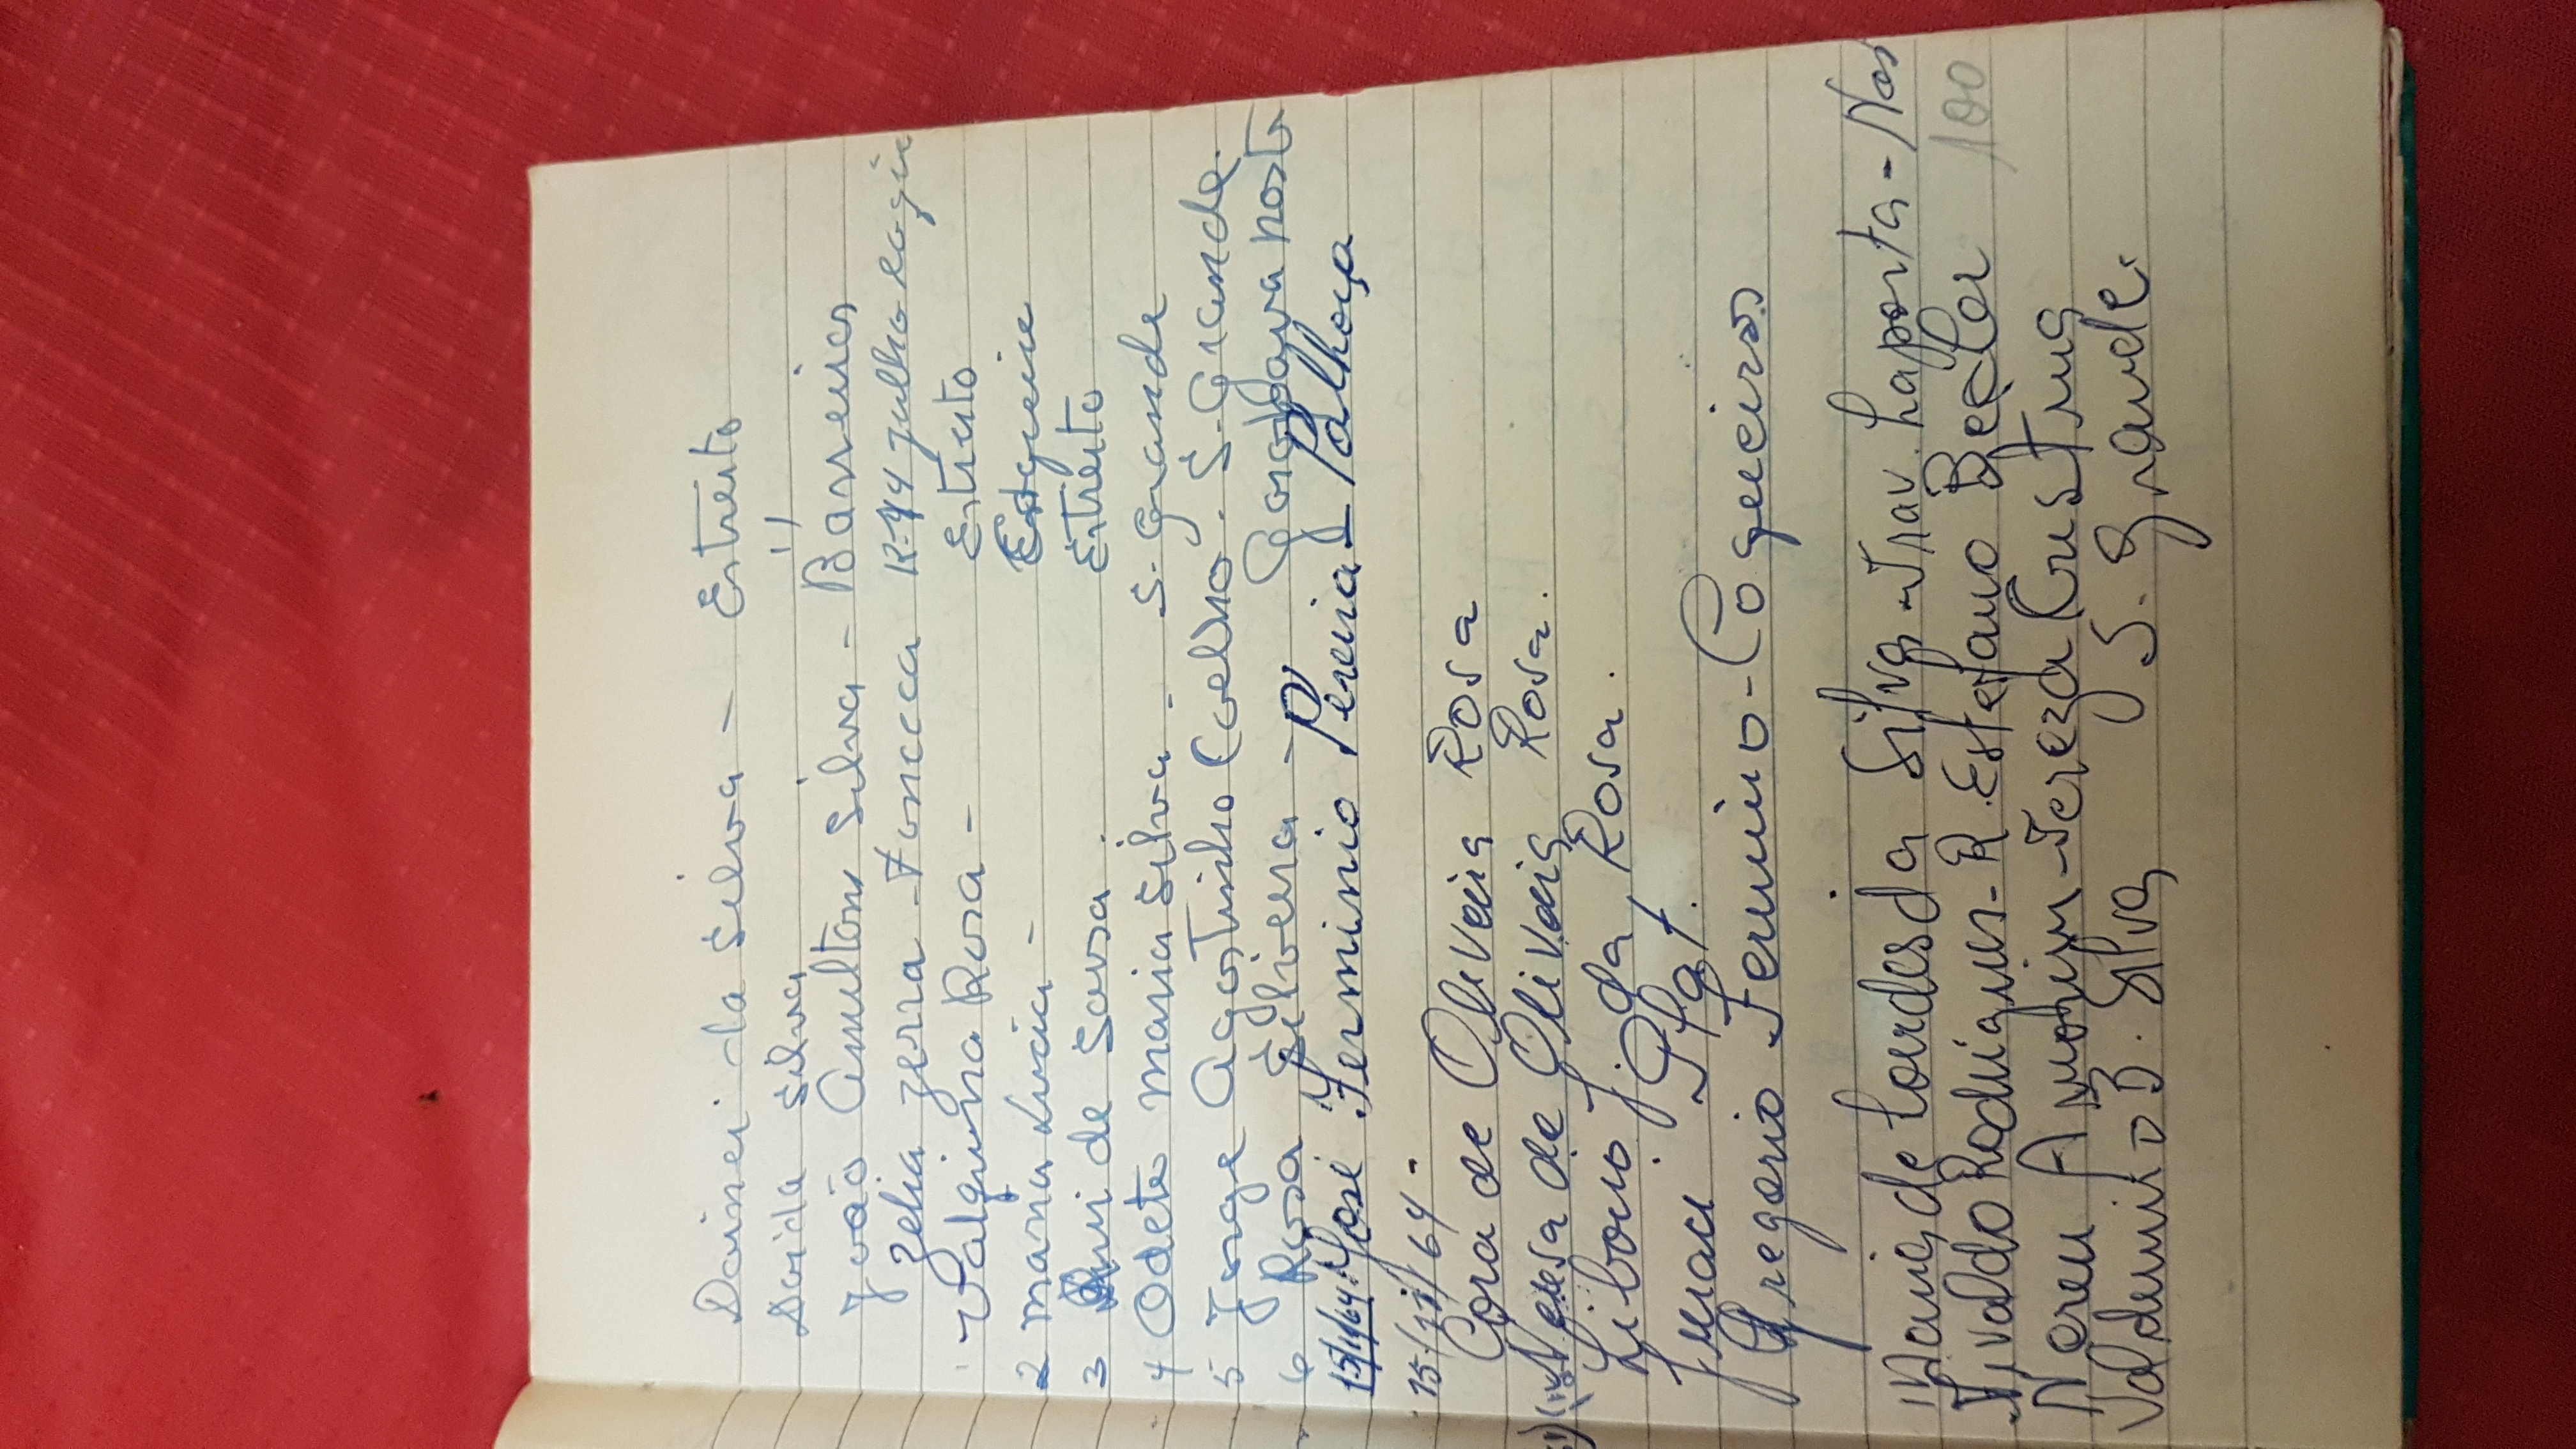 Dainei da Silva - Estreito
Davida Silva "
João Amilton Silva - Barreiros
Zelia Zerra - Fonceca R-14 Julho
Valquina Rosa - Estreito
2 Maria Lucia -
3 de Sousa. Estreito
4 Odete Maria Silva - S. Grande
5 Jorge Agostinho Coelho. S. Grande.
6 Rosa Silvera -
15/11/64 José Fermino Pereira - Palhoça
15/11/64 -
Cora de Oliveira Rosa
Neusa de Oliveira Rosa.
Liborio J. da Rosa.
Gregorio Fermino - Coqueiros
Maria de Lourdes da Silva - Trav. Laporta - Nos
Nivaldo Rodrigues - R. Estefano Becker 100
Nereu Amorim - Tereza Cristina
Valdemiro B. Silva S. Grande.